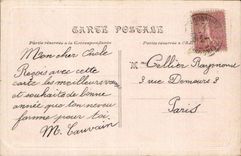 CARTE POSTALE
Partie réservée à la Correspondance
Mon cher
Reçois avec cette
carte les meilleurs vœux
et souhaits de bonne
année que ton neveu
forme pour toi.
M. Cauvain
M. Cellier Raymond
3 rue
Paris